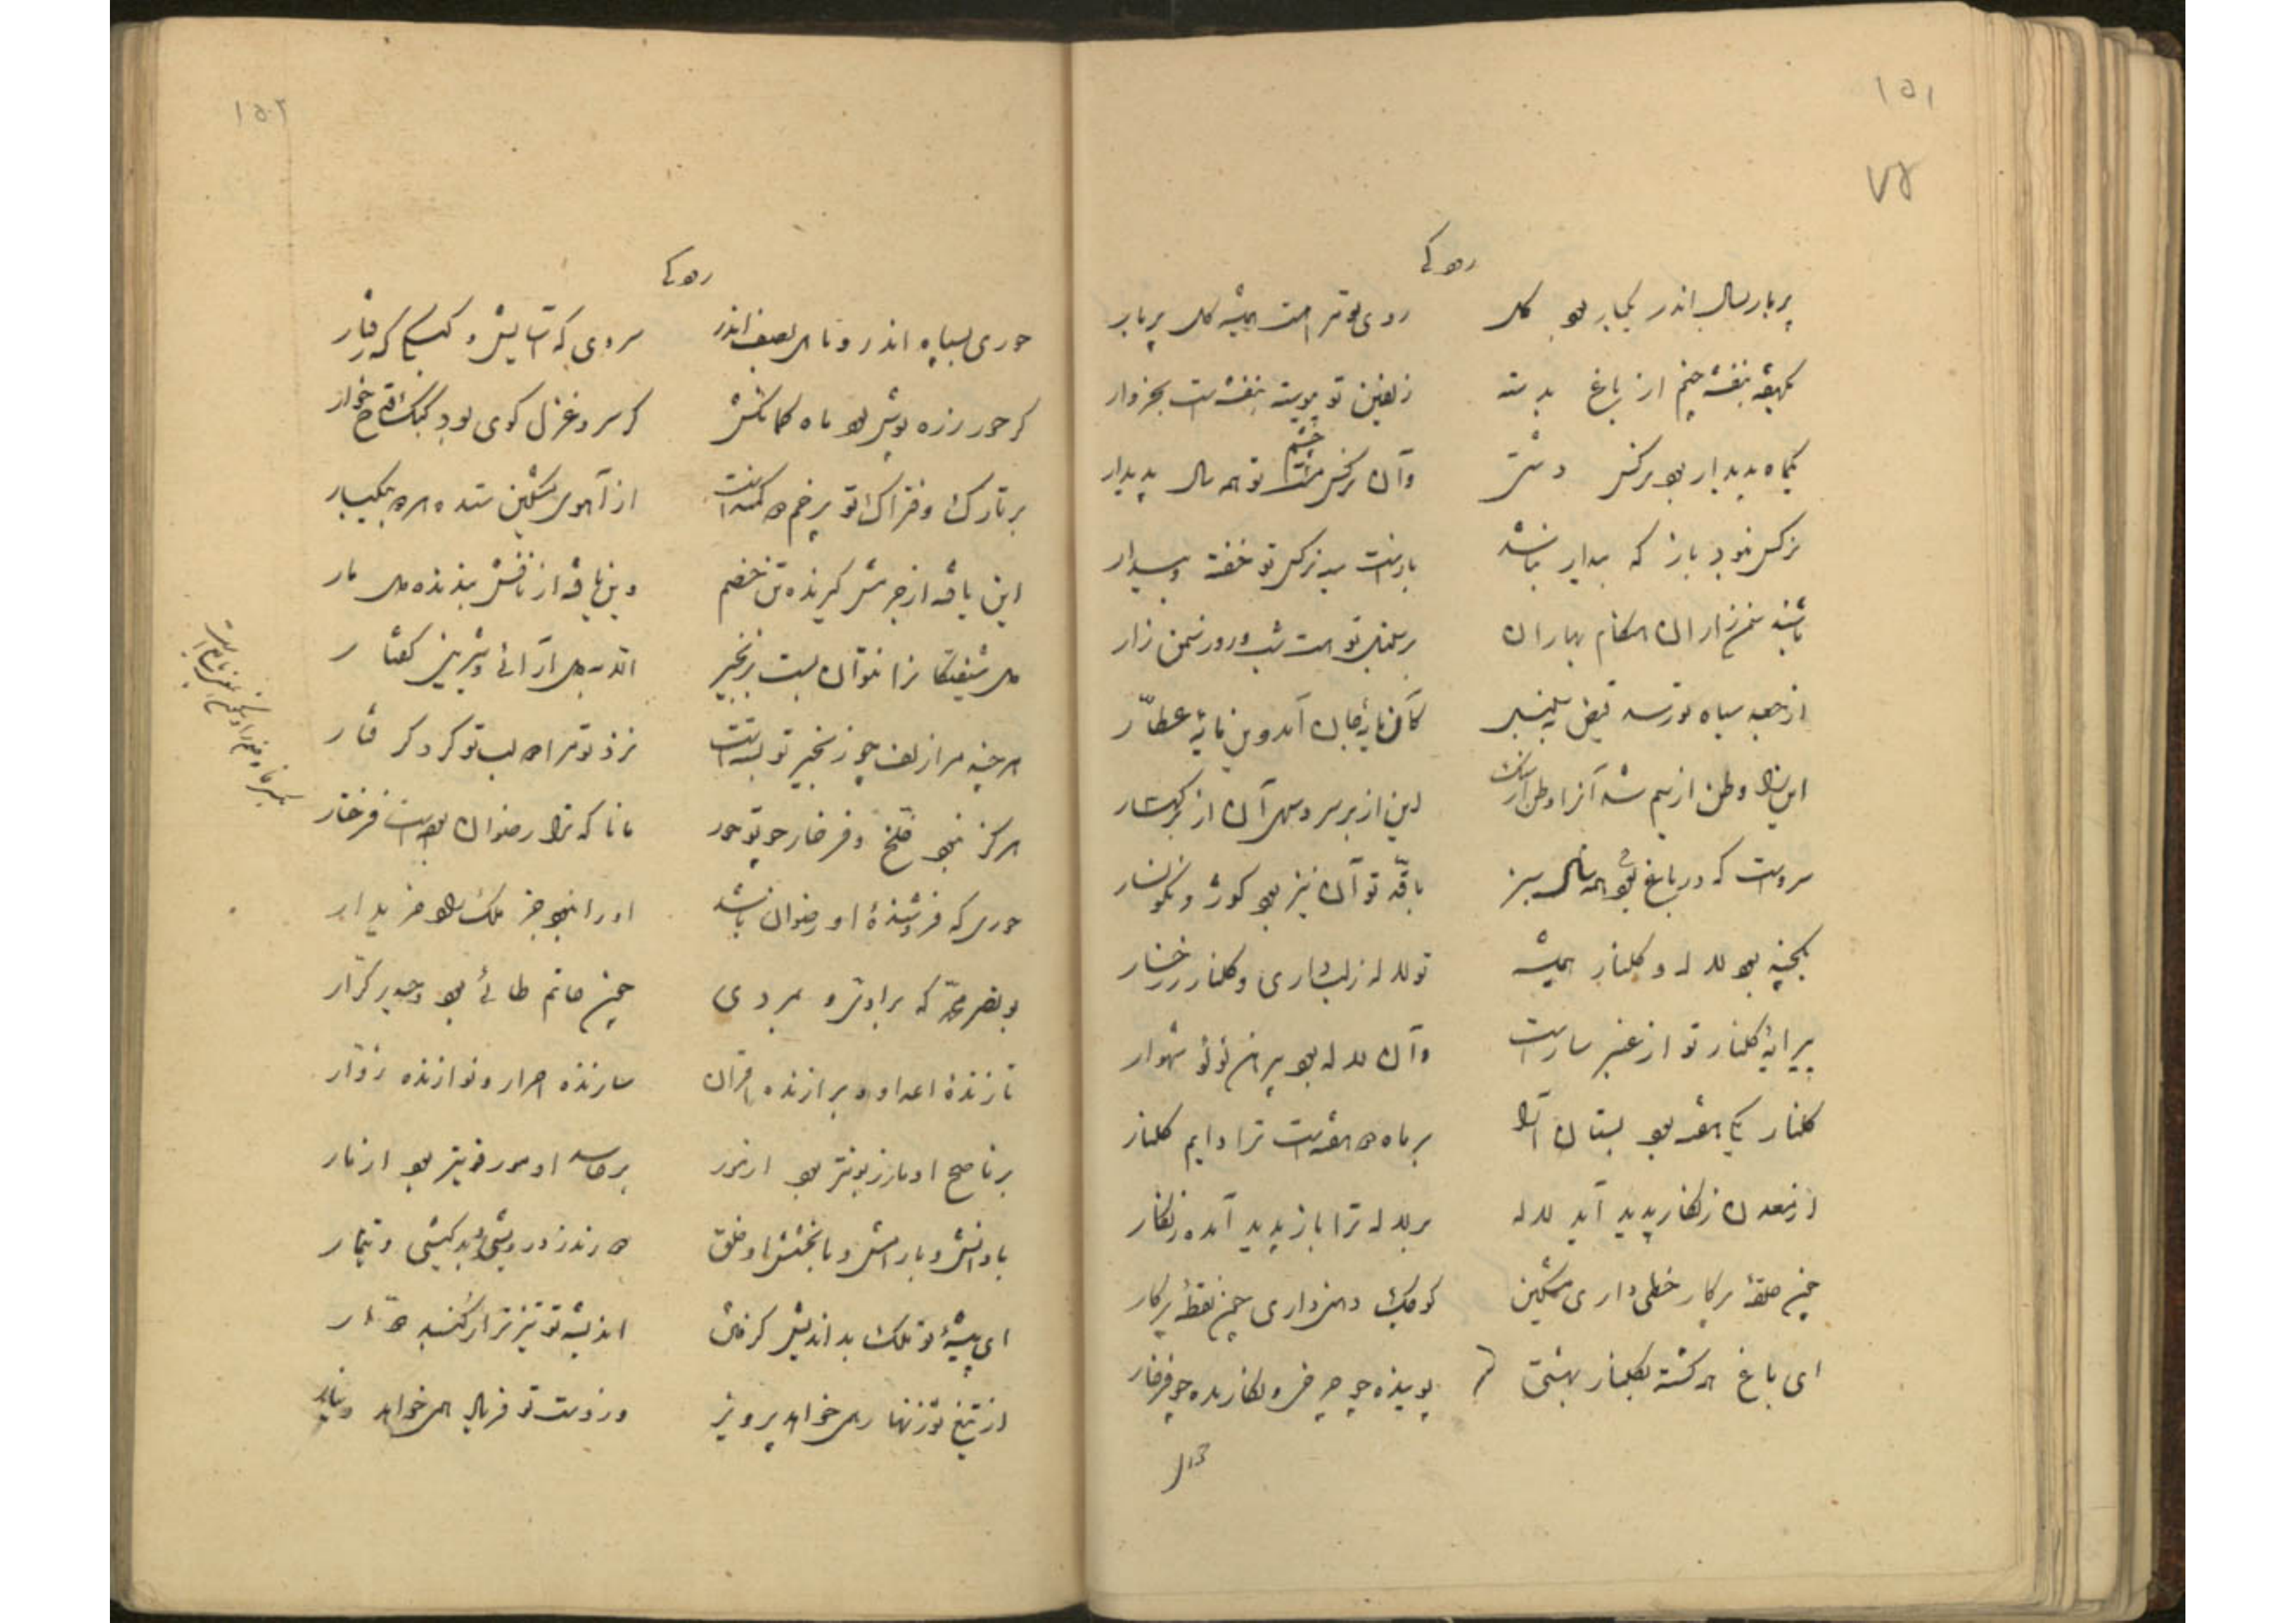 ۱۵۱
۷۶
رودکی
پر بار بسال اندر یکبار بود گل روی تو مرا هست همیشه گل پر بار
یکهفته بنفشه چنم از باغ بدسته زلفین تو پیوسته بنفشه است بخروار
یکماه پدیدار بود نرگس دشتی وآن نرگس چشم تو همه سال پدیدار
نرگس نبود باز که بیدار نباشد بازست سیه نرگس تو خفته و بیدار
باشند سمن زاران هنگام بهاران بر سنبل تو هست شب و روز سمن زار
از جعد سیاه تو رسد فیض بسنبل کآن مایهٔ جان آمد وین مایهٔ عطّار
این را وطن از سیم شد آنرا وطن از سنگ این از بر سرو سهی آن از بر کهسار
سروست که در باغ بود همه سال سبز با قد تو آن نیز بود کوژ و نگونسار
یکچند بود لاله و گلنار همیشه تو لاله ز لب داری و گلنار ز رخسار
پیرایهٔ گلنار تو از عنبر ساراست وآن لاله بود پیرهن لؤلؤ شهوار
گلنار یکی هفته بود بستان آرا بر ماه دو هفته است ترا دایم گلنار
از معدن زنگار پدید آید لاله بر لاله ترا باز پدید آمده زنگار
چون حلقهٔ پرگار خطی داری مشکین کوچک دهنی داری چون نقطهٔ پرگار
ای باغ همه گشته بگلنار بهشتی پوینده چو چرخی و نگارنده چو فرخار
۱۵۲
رودکی
حوری بسپاه اندر و ماهی بصف اندر سروی بگه آسایش و کبکی بگه رفتار
گر حور زره پوش بود ماه کمانکش گر سرو غزل گوی بود کبک قدح خوار
بر تارک و فتراک تو پر خم دو کمندست از آهوی مشکین ستده هر دو بیکبار
این بافه از چرمش گیرنده تن خصم وین بافه از نافش بندنده دل یار
دل شیفتگانرا نتوان بست بزنجیر الّا بدل آرائی و شیرین گفتار
هر چند مرا زلف چو زنجیر تو بستست نزد تو مرا دو لب تو کرد گرفتار
هرگز نبود خلّخ و فرخار چو تو حور مانا که ترا رضوان بودست فرخار
حوری که فروشندهٔ او رضوان باشد او را نبود جز ملک راد خریدار
بو نصر محمّد که برادی و بمردی چون حاتم طائی بود و حیدر کرّار
تازندهٔ اعدا و برازنده اقران سازنده احرار و نوازنده زوّار
بر ناصح او نار زبونتر بود از نور بر حاسد او نور قویتر بود از نار
با دانش و با رامش و با بخشش او خلق ندرند ز درویشی و بدکیشی و تیمار
ای پیشهٔ تو ملک بداندیش گرفتن اندیشه تو تیزتر از گنبد دوّار
از تیغ تو زنهار همی خواهد پرویز وز دست تو فریاد همی خواهد دینار